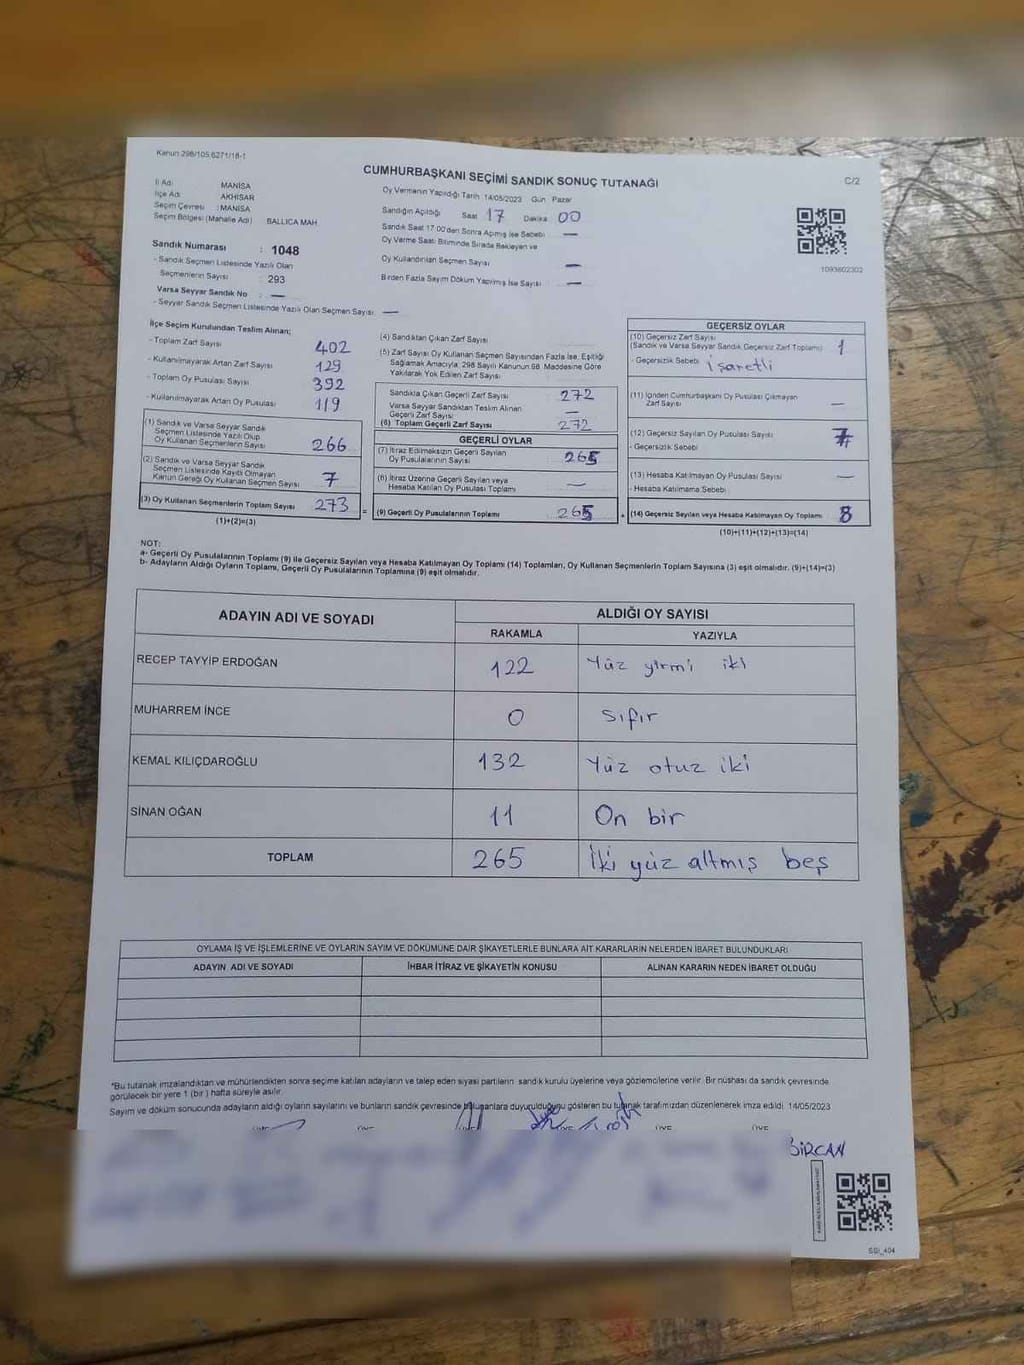 Kanun 298/105,6271/18-1
CUMHURBAŞKANI SEÇİMİ SANDIK SONUÇ TUTANAĞI
C/2
İl Adı MANİSA
İlçe Adı AKHİSAR
Seçim Çevresi : MANİSA
Seçim Bölgesi (Mahalle Adı) BALLICA MAH
Oy Vermenin Yapıldığı Tarih 14/05/2023 Gün Pazar
Sandığın Açıldığı Saat 17 Dakika 00
Sandık Saat 17.00'den Sonra Açılmış İse Sebebi —
Oy Verme Saati Bitiminde Sırada Bekleyen ve
Oy Kullandırılan Seçmen Sayısı —
Birden Fazla Sayım Döküm Yapılmış İse Sayısı —
1093802302
Sandık Numarası : 1048
- Sandık Seçmen Listesinde Yazılı Olan
Seçmenlerin Sayısı 293
Varsa Seyyar Sandık No : —
- Seyyar Sandık Seçmen Listesinde Yazılı Olan Seçmen Sayısı —
İlçe Seçim Kurulundan Teslim Alınan;
- Toplam Zarf Sayısı 402
- Kullanılmayarak Artan Zarf Sayısı 129
- Toplam Oy Pusulası Sayısı 392
- Kullanılmayarak Artan Oy Pusulası 119
(1) Sandık ve Varsa Seyyar Sandık
Seçmen Listesinde Yazılı Olup
Oy Kullanan Seçmenlerin Sayısı 266
(2) Sandık ve Varsa Seyyar Sandık
Seçmen Listesinde Kayıtlı Olmayan
Kanun Gereği Oy Kullanan Seçmen Sayısı 7
(3) Oy Kullanan Seçmenlerin Toplam Sayısı 273
(1)+(2)=(3)
(4) Sandıktan Çıkan Zarf Sayısı
(5) Zarf Sayısı Oy Kullanan Seçmen Sayısından Fazla İse, Eşitliği
Sağlamak Amacıyla, 298 Sayılı Kanunun 98. Maddesine Göre
Yakılarak Yok Edilen Zarf Sayısı
Sandıkta Çıkan Geçerli Zarf Sayısı 272
Varsa Seyyar Sandıktan Teslim Alınan
Geçerli Zarf Sayısı —
(6) Toplam Geçerli Zarf Sayısı 272
GEÇERLİ OYLAR
(7) İtiraz Edilmeksizin Geçerli Sayılan
Oy Pusulalarının Sayısı 265
(8) İtiraz Üzerine Geçerli Sayılan veya
Hesaba Katılan Oy Pusulası Toplamı —
= (9) Geçerli Oy Pusulalarının Toplamı 265 +
GEÇERSİZ OYLAR
(10) Geçersiz Zarf Sayısı
(Sandık ve Varsa Seyyar Sandık Geçersiz Zarf Toplamı) 1
- Geçersizlik Sebebi İşaretli
(11) İçinden Cumhurbaşkanı Oy Pusulası Çıkmayan
Zarf Sayısı —
(12) Geçersiz Sayılan Oy Pusulası Sayısı 7
- Geçersizlik Sebebi
(13) Hesaba Katılmayan Oy Pusulası Sayısı —
- Hesaba Katılmama Sebebi
(14) Geçersiz Sayılan veya Hesaba Katılmayan Oy Toplamı 8
(10)+(11)+(12)+(13)=(14)
NOT:
a- Geçerli Oy Pusulalarının Toplamı (9) ile Geçersiz Sayılan veya Hesaba Katılmayan Oy Toplamı (14) Toplamları, Oy Kullanan Seçmenlerin Toplam Sayısına (3) eşit olmalıdır. (9)+(14)=(3)
b- Adayların Aldığı Oyların Toplamı, Geçerli Oy Pusulalarının Toplamına (9) eşit olmalıdır.
ADAYIN ADI VE SOYADI
ALDIĞI OY SAYISI
RAKAMLA YAZIYLA
RECEP TAYYİP ERDOĞAN 122 Yüz yirmi iki
MUHARREM İNCE 0 sıfır
KEMAL KILIÇDAROĞLU 132 Yüz otuz iki
SİNAN OĞAN 11 On bir
TOPLAM 265 İki yüz altmış beş
OYLAMA İŞ VE İŞLEMLERİNE VE OYLARIN SAYIM VE DÖKÜMÜNE DAİR ŞİKAYETLERLE BUNLARA AİT KARARLARIN NELERDEN İBARET BULUNDUKLARI
ADAYIN ADI VE SOYADI İHBAR İTİRAZ VE ŞİKAYETİN KONUSU ALINAN KARARIN NEDEN İBARET OLDUĞU
*Bu tutanak imzalandıktan ve mühürlendikten sonra seçime katılan adayların ve talep eden siyasi partilerin sandık kurulu üyelerine veya gözlemcilerine verilir. Bir nüshası da sandık çevresinde
görülecek bir yere 1 (bir) hafta süreyle asılır.
Sayım ve döküm sonucunda adayların aldığı oyların sayılarını ve bunların sandık çevresinde bulunanlara duyurulduğunu gösteren bu tutanak tarafımızdan düzenlenerek imza edildi. 14/05/2023
BİRCAN
SSI_404